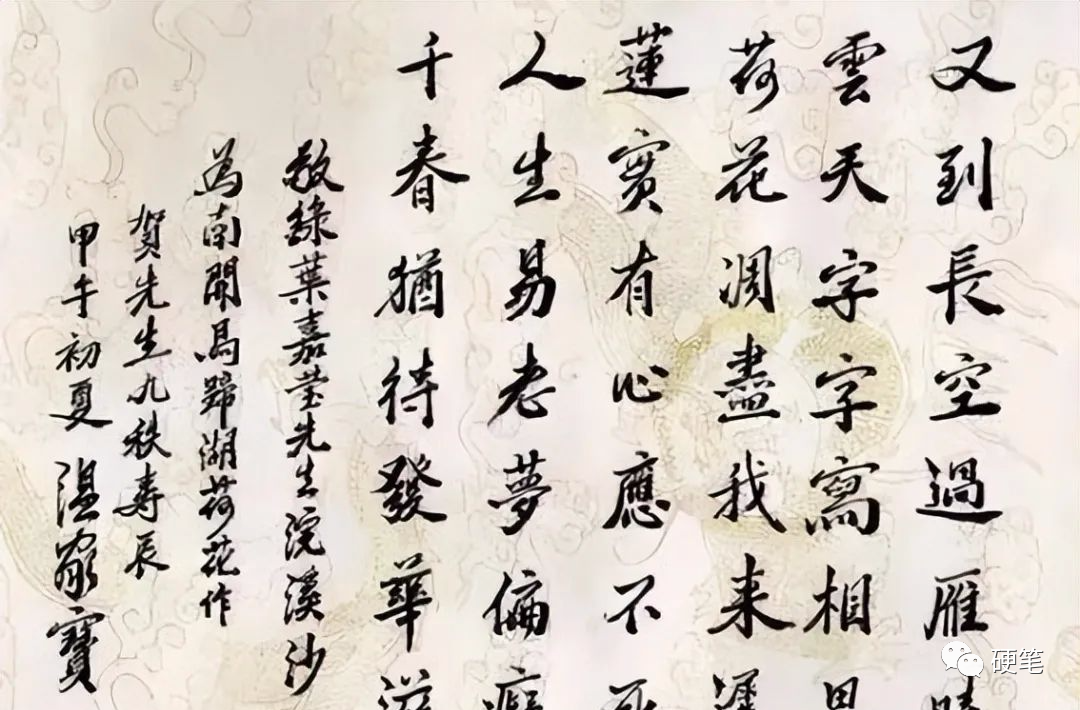 又到長空過雁
雲天字字寫相
荷花凋盡我来
蓮實有心應不
人生易老夢偏
千春猶待發華
敬錄葉嘉瑩先生浣溪沙
為南開馬蹄湖荷花作
賀先生九秩壽辰
甲午初夏 溫家寶
硬笔